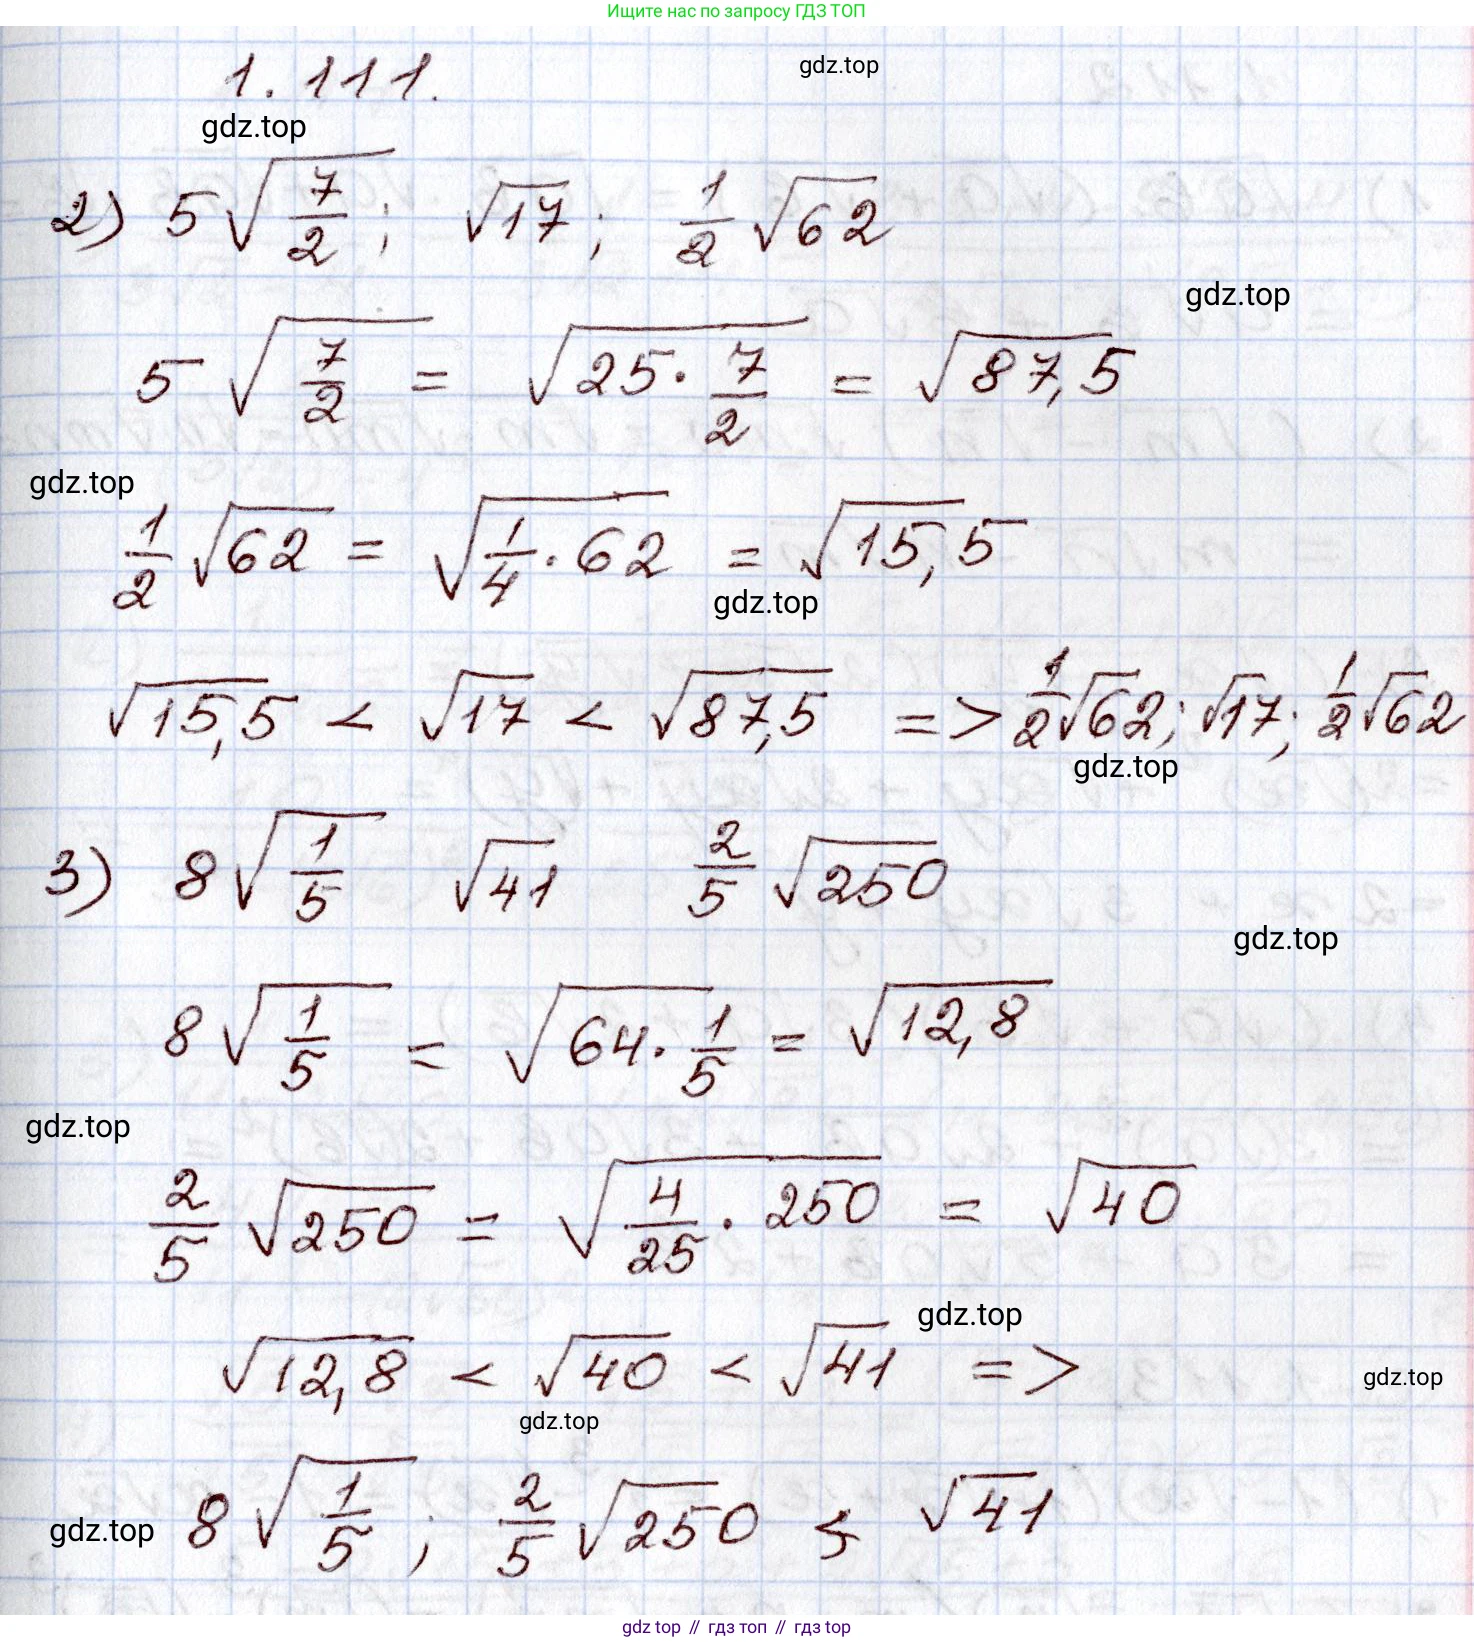 Ищите нас по запросу ГДЗ ТОП
1.111.
gdz.top
gdz.top
2) 5√(7/2); √17; 1/2√62
gdz.top
5√(7/2) = √(25·7/2) = √87,5
gdz.top
1/2√62 = √(1/4·62) = √15,5
gdz.top
√15,5 < √17 < √87,5 => 1/2√62; √17; 1/2√62
gdz.top
3) 8√(1/5) √41 2/5√250
gdz.top
8√(1/5) = √(64·1/5) = √12,8
gdz.top
2/5√250 = √(4/25·250) = √40
gdz.top
√12,8 < √40 < √41 =>
gdz.top
gdz.top
8√(1/5); 2/5√250 ; √41
gdz.top
gdz top // гдз топ // гдз top